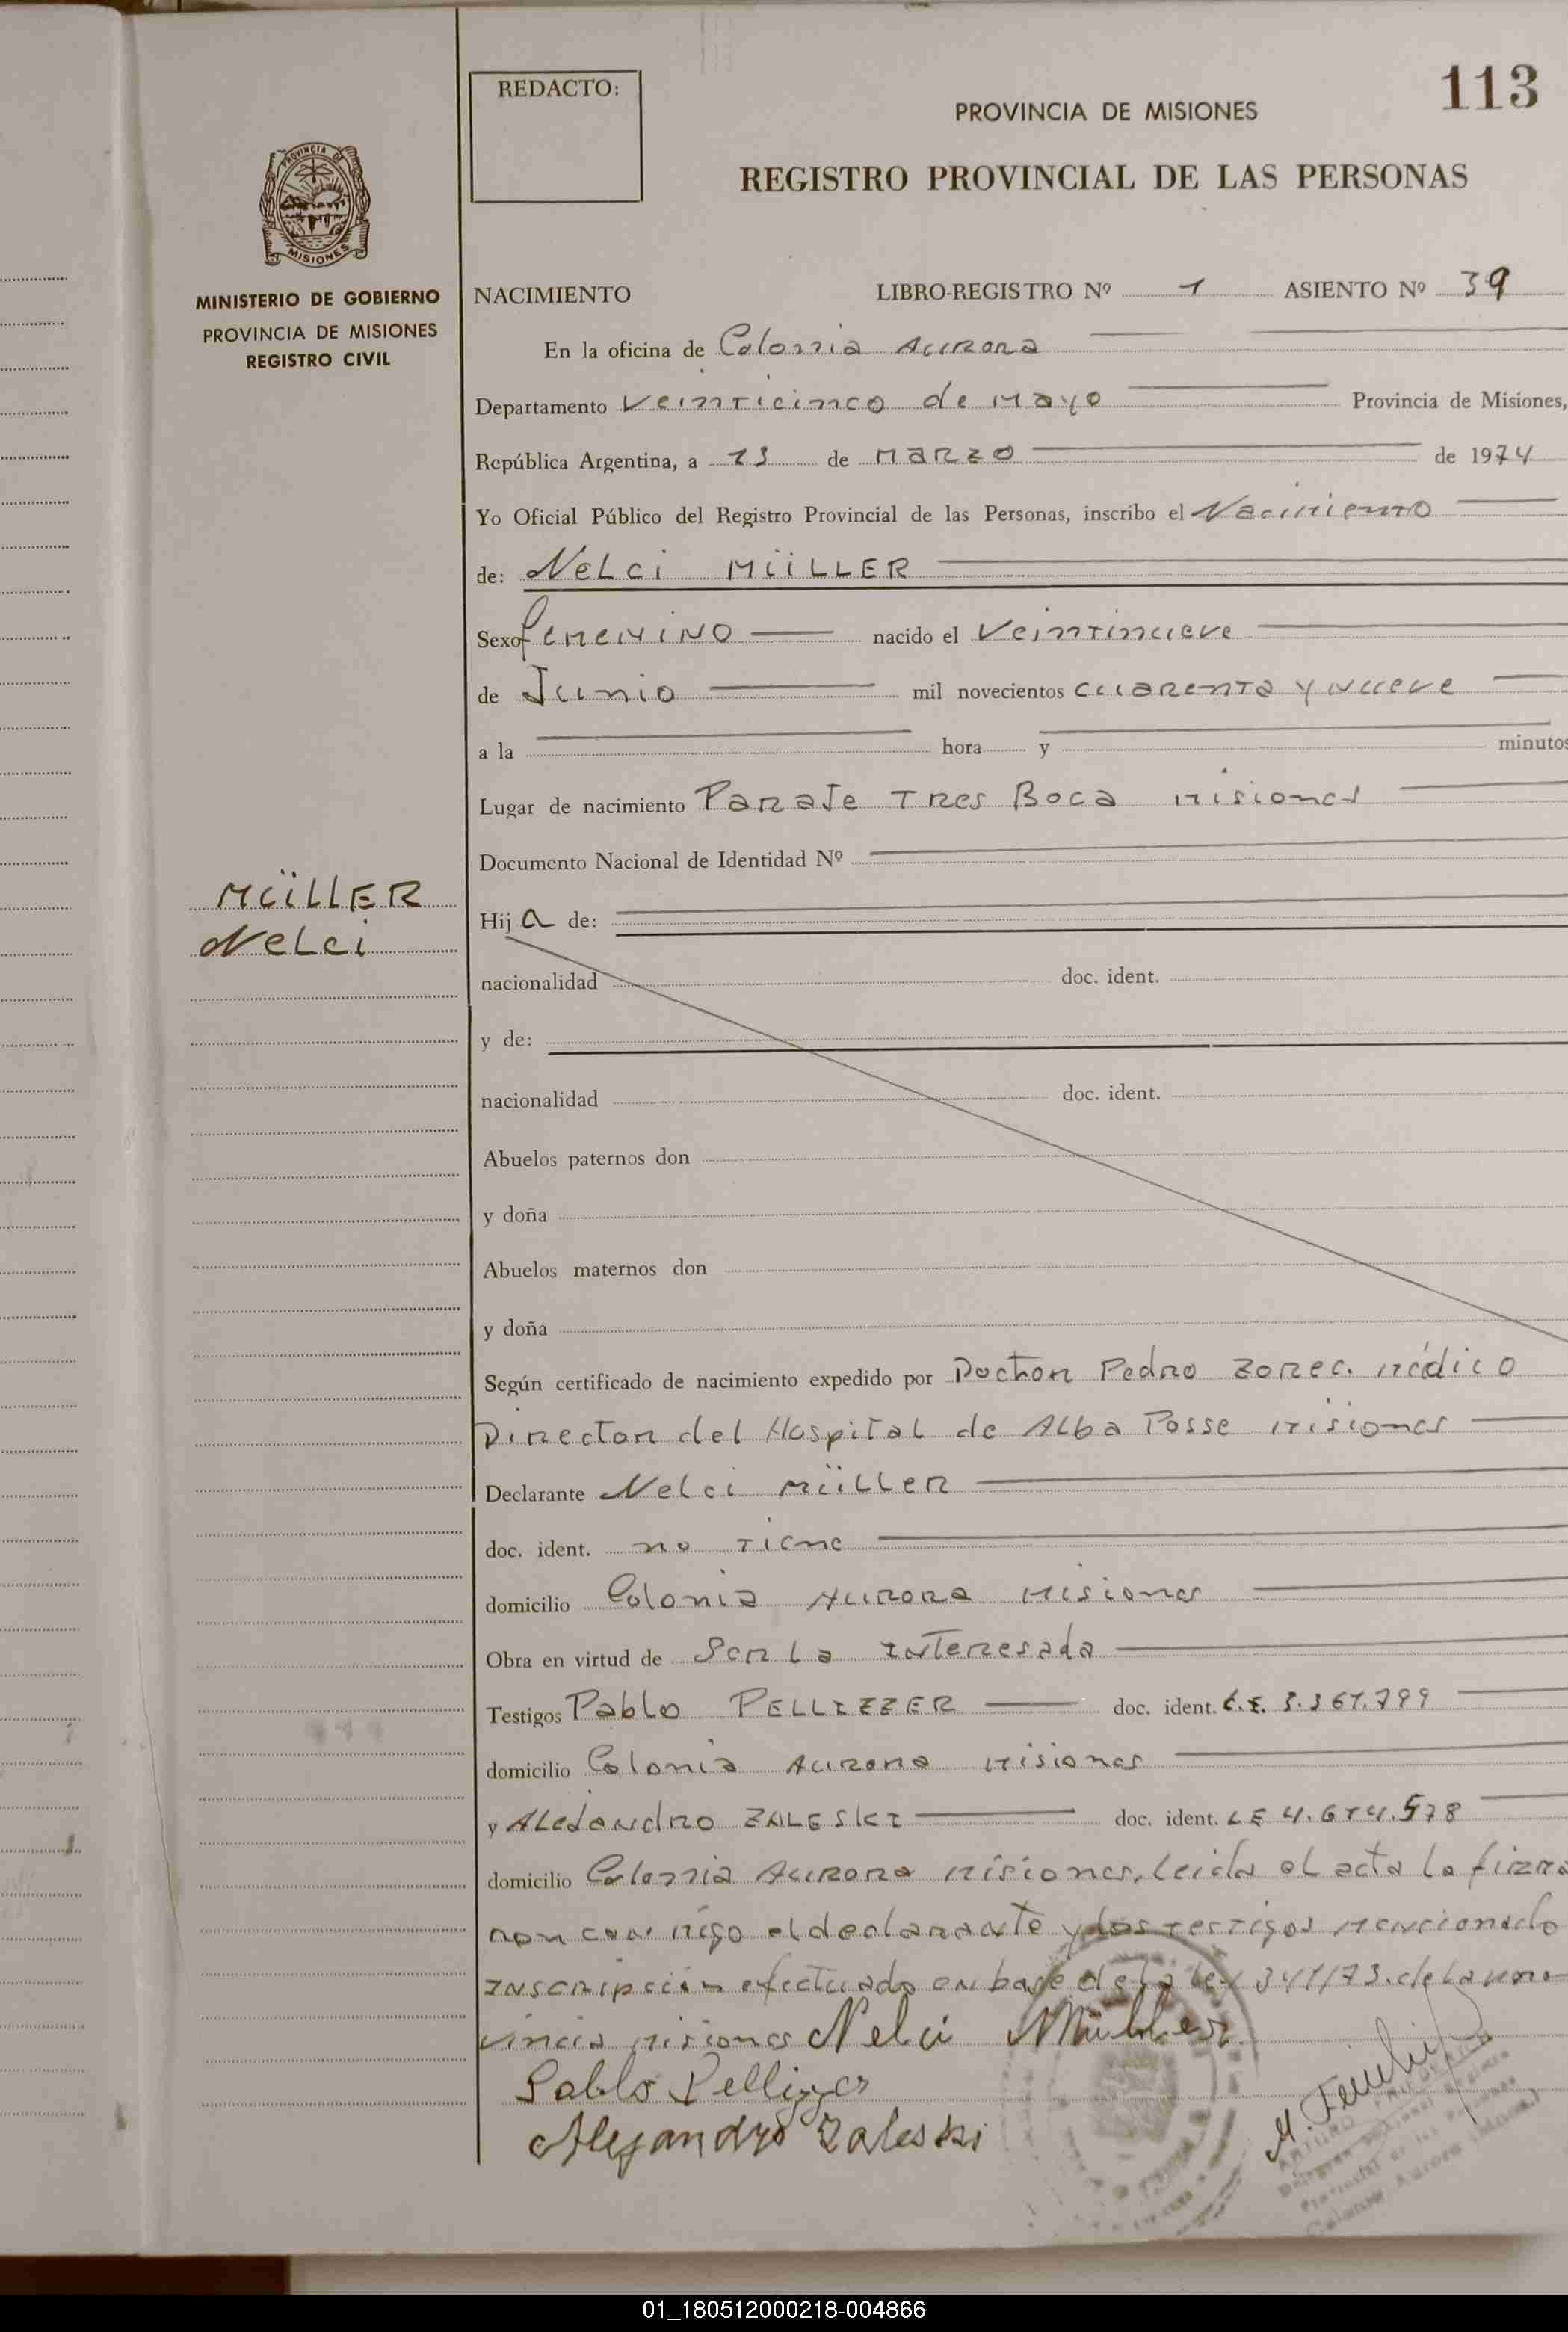 113
REDACTO:
PROVINCIA DE MISIONES
REGISTRO PROVINCIAL DE LAS PERSONAS
PROVINCIA DE
MISIONES
MINISTERIO DE GOBIERNO
PROVINCIA DE MISIONES
REGISTRO CIVIL
NACIMIENTO LIBRO-REGISTRO Nº 1 ASIENTO Nº 39
En la oficina de Colonia Aurora
Departamento Veinticinco de Mayo Provincia de Misiones,
República Argentina, a 13 de Marzo de 1974
Yo Oficial Público del Registro Provincial de las Personas, inscribo el Nacimiento
de: Nelci MüLLER
Sexo femenino nacido el Veintinueve
de Junio mil novecientos cuarenta y nueve
a la hora y minutos
Lugar de nacimiento Paraje Tres Boca Misiones
Documento Nacional de Identidad Nº
MüLLER
Nelci
Hija de:
nacionalidad doc. ident.
y de:
nacionalidad doc. ident.
Abuelos paternos don
y doña
Abuelos maternos don
y doña
Según certificado de nacimiento expedido por Doctor Pedro Zorec. médico
Director del Hospital de Alba Posse Misiones
Declarante Nelci Müller
doc. ident. no tiene
domicilio Colonia Aurora Misiones
Obra en virtud de Ser la interesada
Testigos Pablo PELLIZZER doc. ident.
domicilio Colonia Aurora Misiones
y Alejandro ZALESKI doc. ident. LE
domicilio Colonia Aurora Misiones, leida el acta la firma
ron con migo el declarante y los testigos mencionado
inscripción efectuado en base de la ley 341/73. de la pro
vincia Misiones Nelci Müller
Pablo Pellizzer
Alejandro Zaleski
ARTURO
Colonia Aurora
01_180512000218-004866